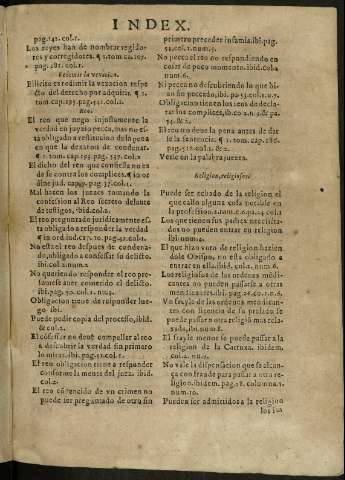 INDEX.
pag.142.col.1.
Los reyes han de nombrar regido-
res y corregidores. ¶ 1.tom ca.107.
pag.281.col.1.
Redimir la vexacion.
Es licito redimir la vexacion respe
cto del derecho por adquirir. ¶ 1.
tom.cap.195.pag.541.col.1.
Reo.
El reo que nego injustamente la
verdad en juyzio pecca, mas no es-
ta obligado a restitucion de la pena
en que la dexaron de condenar.
¶ 1. tom.cap.195.pag.537.col.1.
El dicho del reo que confiessa no ha
ze fe contra los complices. ¶ in or
dine jud. cap. pag.37.col.1.
Mal hazen los juezes tomando la
confession al Reo secreto delante
de testigos, ibid.col.2.
El reo preguntado juridicamente es
ta obligado a responder la verdad
¶ in ord.jud.ca.10.pag.42.col.1.
No esta el reo despues de condena-
do, obligado a confessar su delicto.
ibi.col.2.num.2
No queriendo responder el reo pre-
sumese auer cometido el delicto.
ibi.pag.50.col.1. num.5.
Obligacion tiene de responder lue-
go. ibi.
Puede pedir copia del processo, ibid.
& col.2.
El confessor no deue compeller al reo
a descubrir la verdad sin primero
lo mirar. ibi.pag.51.col.1.
El reo obligacion tiene a responder
conforme la mente del juez. ibid.
col.2.
El reo conuencido de vn crimen no
puede ser preguntado de otro sin
primero preceder infamia.ibi.pag.
52.col.1.num.5.
No pecca el reo no respondiendo en
cosas de poco momento.ibid.col.2
num.6.
Ni pecca no descubriendo lo que hi-
zo sin peccado, ibi.pa.53.col.2.n.7.
Obligacion tienen los reos de decla-
rar sus complices, ib.co.2.n.9.& pa.
54.& 2.
El reo no deue la pena antes de dar
se la sentencia. ¶ 1.tom. cap.186.
pag.512.col.1.& 2.
Vense en la palabra juezes.
Religion, religiosos.
Puede ser echado de la religion el
que callo alguna cosa necessaria en
la profession.
Los que tienen sus padres necessita-
dos no pueden entrar en religion
ibi.num.6.
El que hizo voto de religion hazien
dole Obispo, no esta obligado a
entrar en ella.ibid.col.2. num.6.
Los religiosos de las ordenes mendi-
cantes no pueden passarse a otras
mendicantes.
Vn frayle de las ordenes mendican-
tes con licencia de su prelado se
puede passar a otra religion mas rela-
xada, ibi.num.8.
El frayle menor se puede passar a la
religion de la Cartuxa. ibidem.
col.2.num.9.
No vale la dispensacion que se alcan-
ça con fraude para passar a otra re-
ligion. ibidem. pag.28. coluna.1.
num.10.
Pueden ser admitidos a la religion
los sus